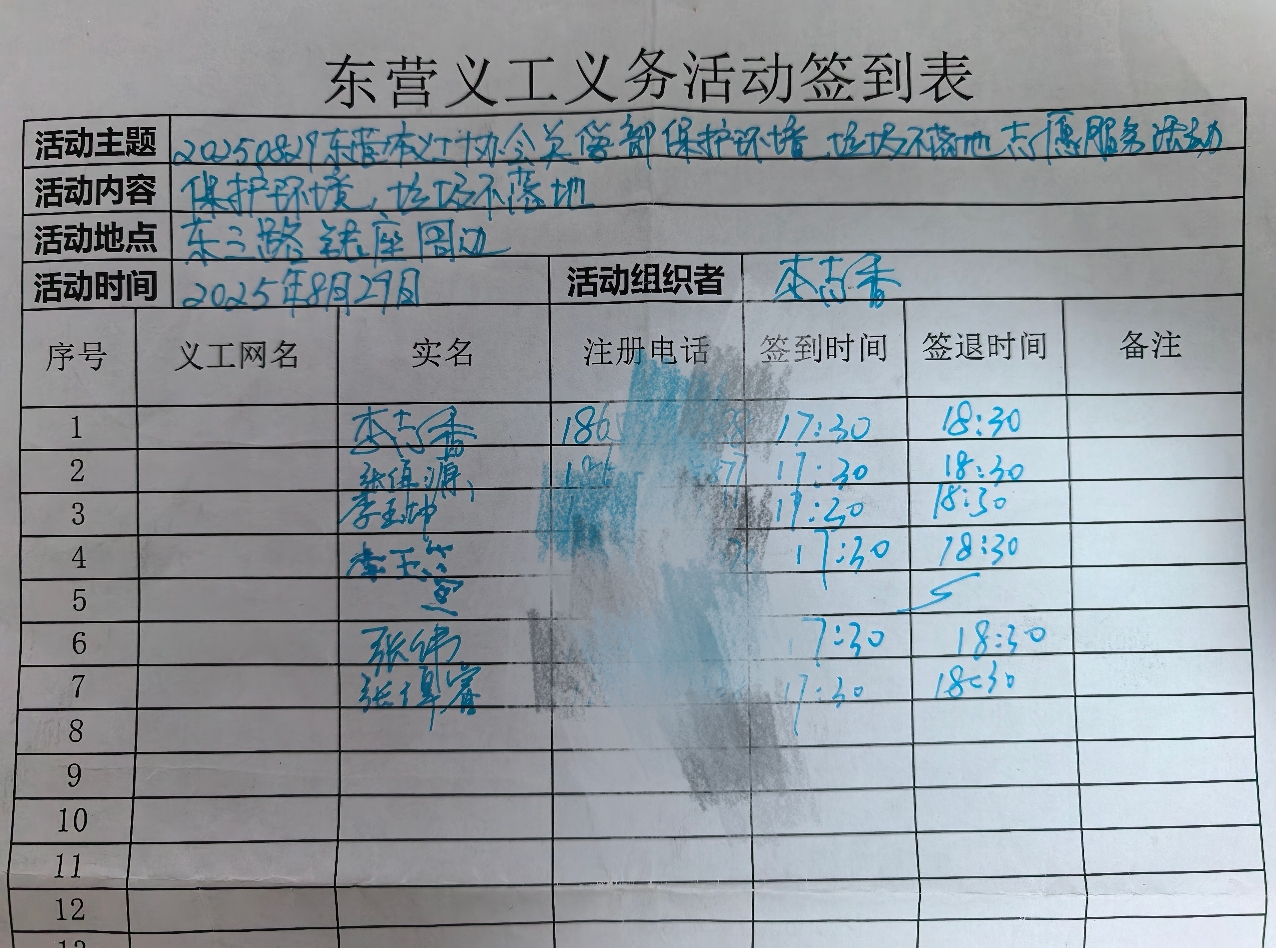 东营义工义务活动签到表
活动主题 20250829东营市义工协会关爱部保护环境 垃圾不落地志愿服务活动
活动内容 保护环境、垃圾不落地
活动地点 东三路 银座周边
活动时间 2025年8月29日 活动组织者 李志香
序号 义工网名 实名 注册电话 签到时间 签退时间 备注
1 李志香 186 17:30 18:30
2 张 源 17:30 18:30
3 李玉坤 17:30 18:30
4 李玉 17:30 18:30
5
6 张伟 17:30 18:30
7 张 睿 17:30 18:30
8
9
10
11
12
13